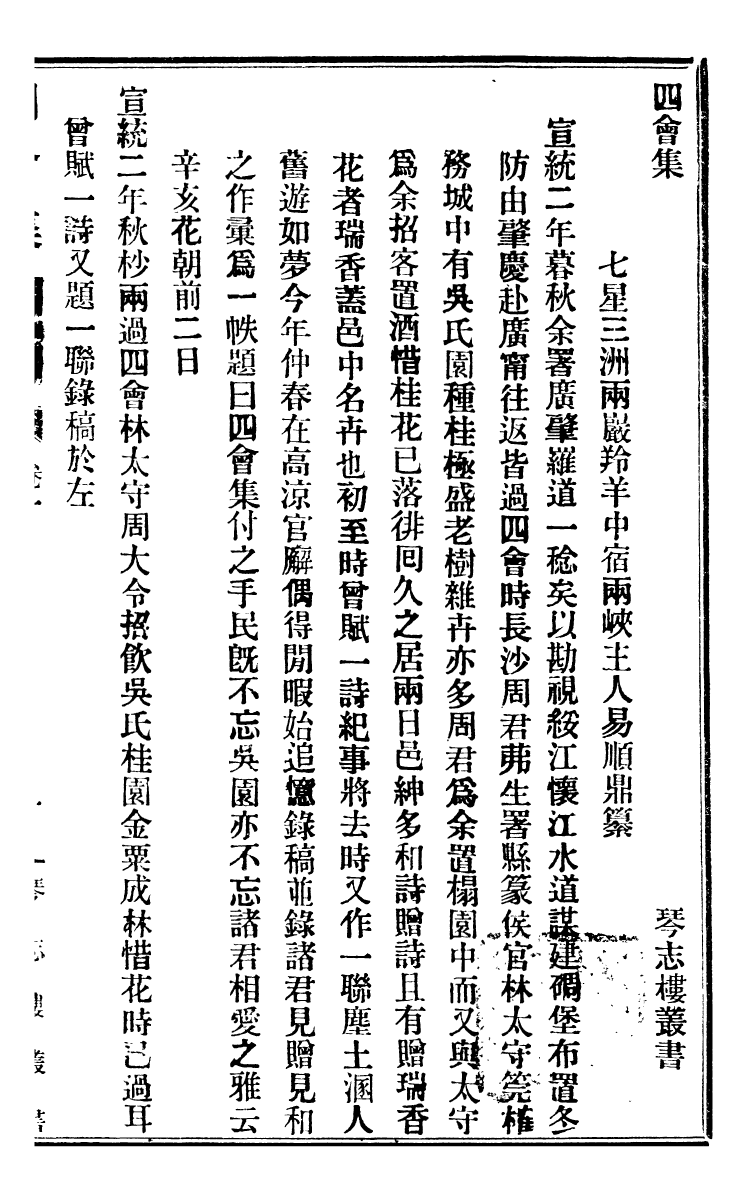 四會集　琴志樓叢書
七星三洲兩巖羚羊中宿兩峽主人易順鼎纂
宣統二年暮秋余署廣肇羅道一稔矣以勘視綏江懷江水道謀建碉堡布置冬
防由肇慶赴廣甯往返皆過四會時長沙周君茀生署縣篆侯官林太守筦榷
務城中有吳氏園種桂極盛老樹雜卉亦多周君爲余置榻園中而又與太守
爲余招客置酒惜桂花已落徘徊久之居兩日邑紳多和詩贈詩且有贈瑞香
花者瑞香蓋邑中名卉也初至時曾賦一詩紀事將去時又作一聯塵土溷人
舊遊如夢今年仲春在高涼官廨偶得閒暇始追憶錄稿並錄諸君見贈見和
之作彙爲一帙題曰四會集付之手民既不忘吳園亦不忘諸君相愛之雅云
辛亥花朝前二日
宣統二年秋杪兩過四會林太守周大令招飲吳氏桂園金粟成林惜花時已過耳
曾賦一詩又題一聯錄稿於左
琴志樓叢書